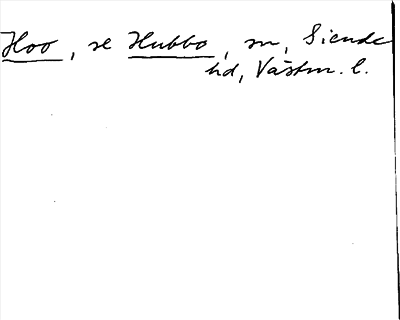 Hoo, se Hubbo, sn, Siende
hd, Västm. l.